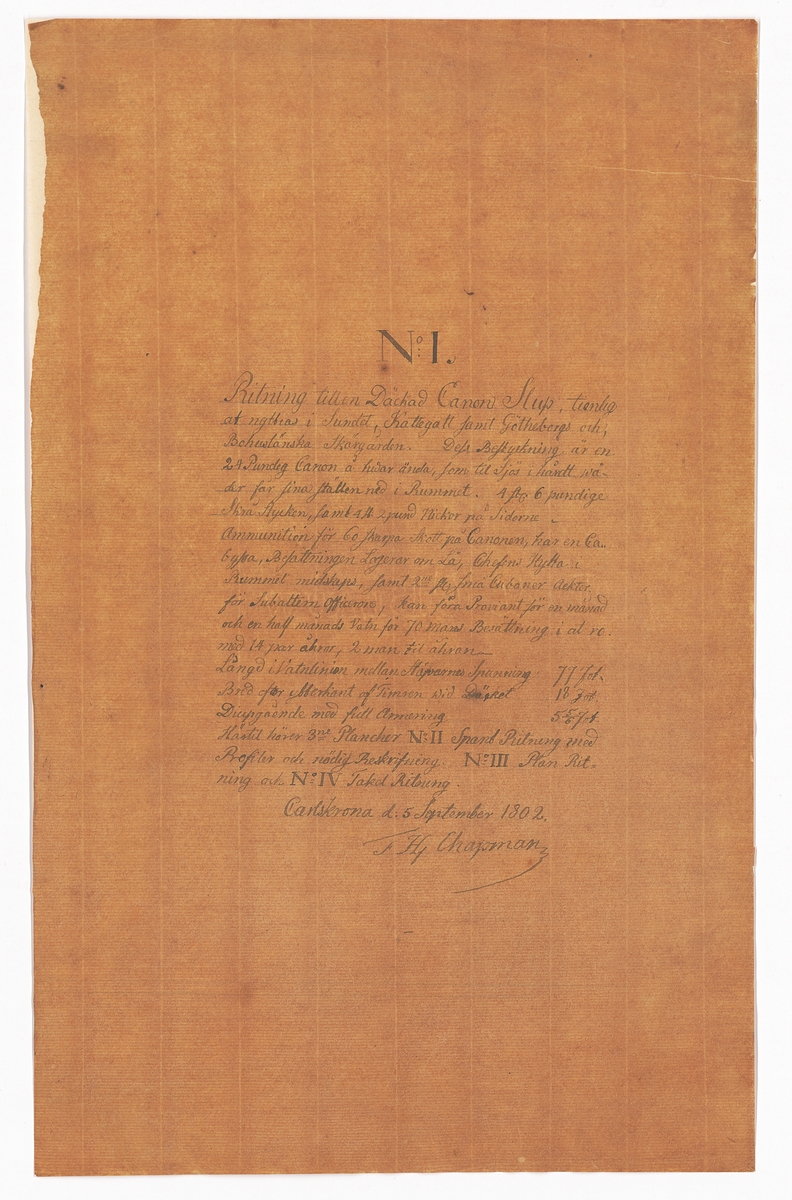 No: 1.
Ritning till en Däckad Canon Slup, tienlig
at nyttias i Sundet, Kattegatt samt Götheborgs och,
Bohuslänska Skärgården. Dess Bestyckning är en
24 Pundig Canon å hwar ända, som til Sjös i hårdt wä-
der far sina ställen ned i Rummet. 4 st 6 pundige
Stycken, samt 4 st 2 pund Nickor på Sidorne -
Ammunition för 60 skarpa Skott på Canonen, har en Ca..
bysa, Besättningen Logerar om Lä, Chefens Hytta i
Rummet midskeps, samt 2ne st små Cubaner Akter
för Subaltern Officerare, kan föra Proviant för en månad
och en half månads Vatn för 70 Mans Besättning i at ro
med 14 par åhror, 2 man til åhran -
Längd i Vatnlinien mellan Stäfvarnes Spanning 77 fot.
Bred för ytterkant af Timren wid Däcket 18 fot
Diupgående med full Armering 5 5/6 fot.
Härtil hörer 3ne Plancher No: II Spant Ritning med
Profiler och nödig Beskrifning. No: III Plan Rit-
ning och No: IV Takel Ritning.
Carlskrona d. 5 September 1802.
F H Chapman